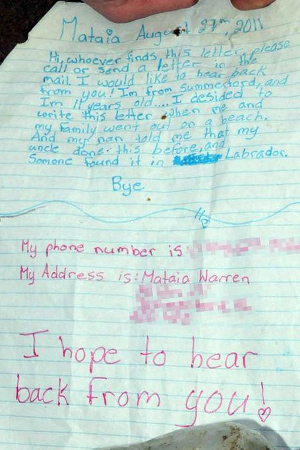 Mataia August 27th, 2011
Hi, whoever finds this letter, please
call or send a letter in the
mail I would like to hear back
from you! Im from Summerford, and
Im 11 years old.... I desided to
write this letter when me and
my family went out on a beach.
And my nan told me that my
uncle done this before, and
Somone found it in Labrador.
Bye
My phone number is
My Address is: Mataia Warren
I hope to hear
back from you!